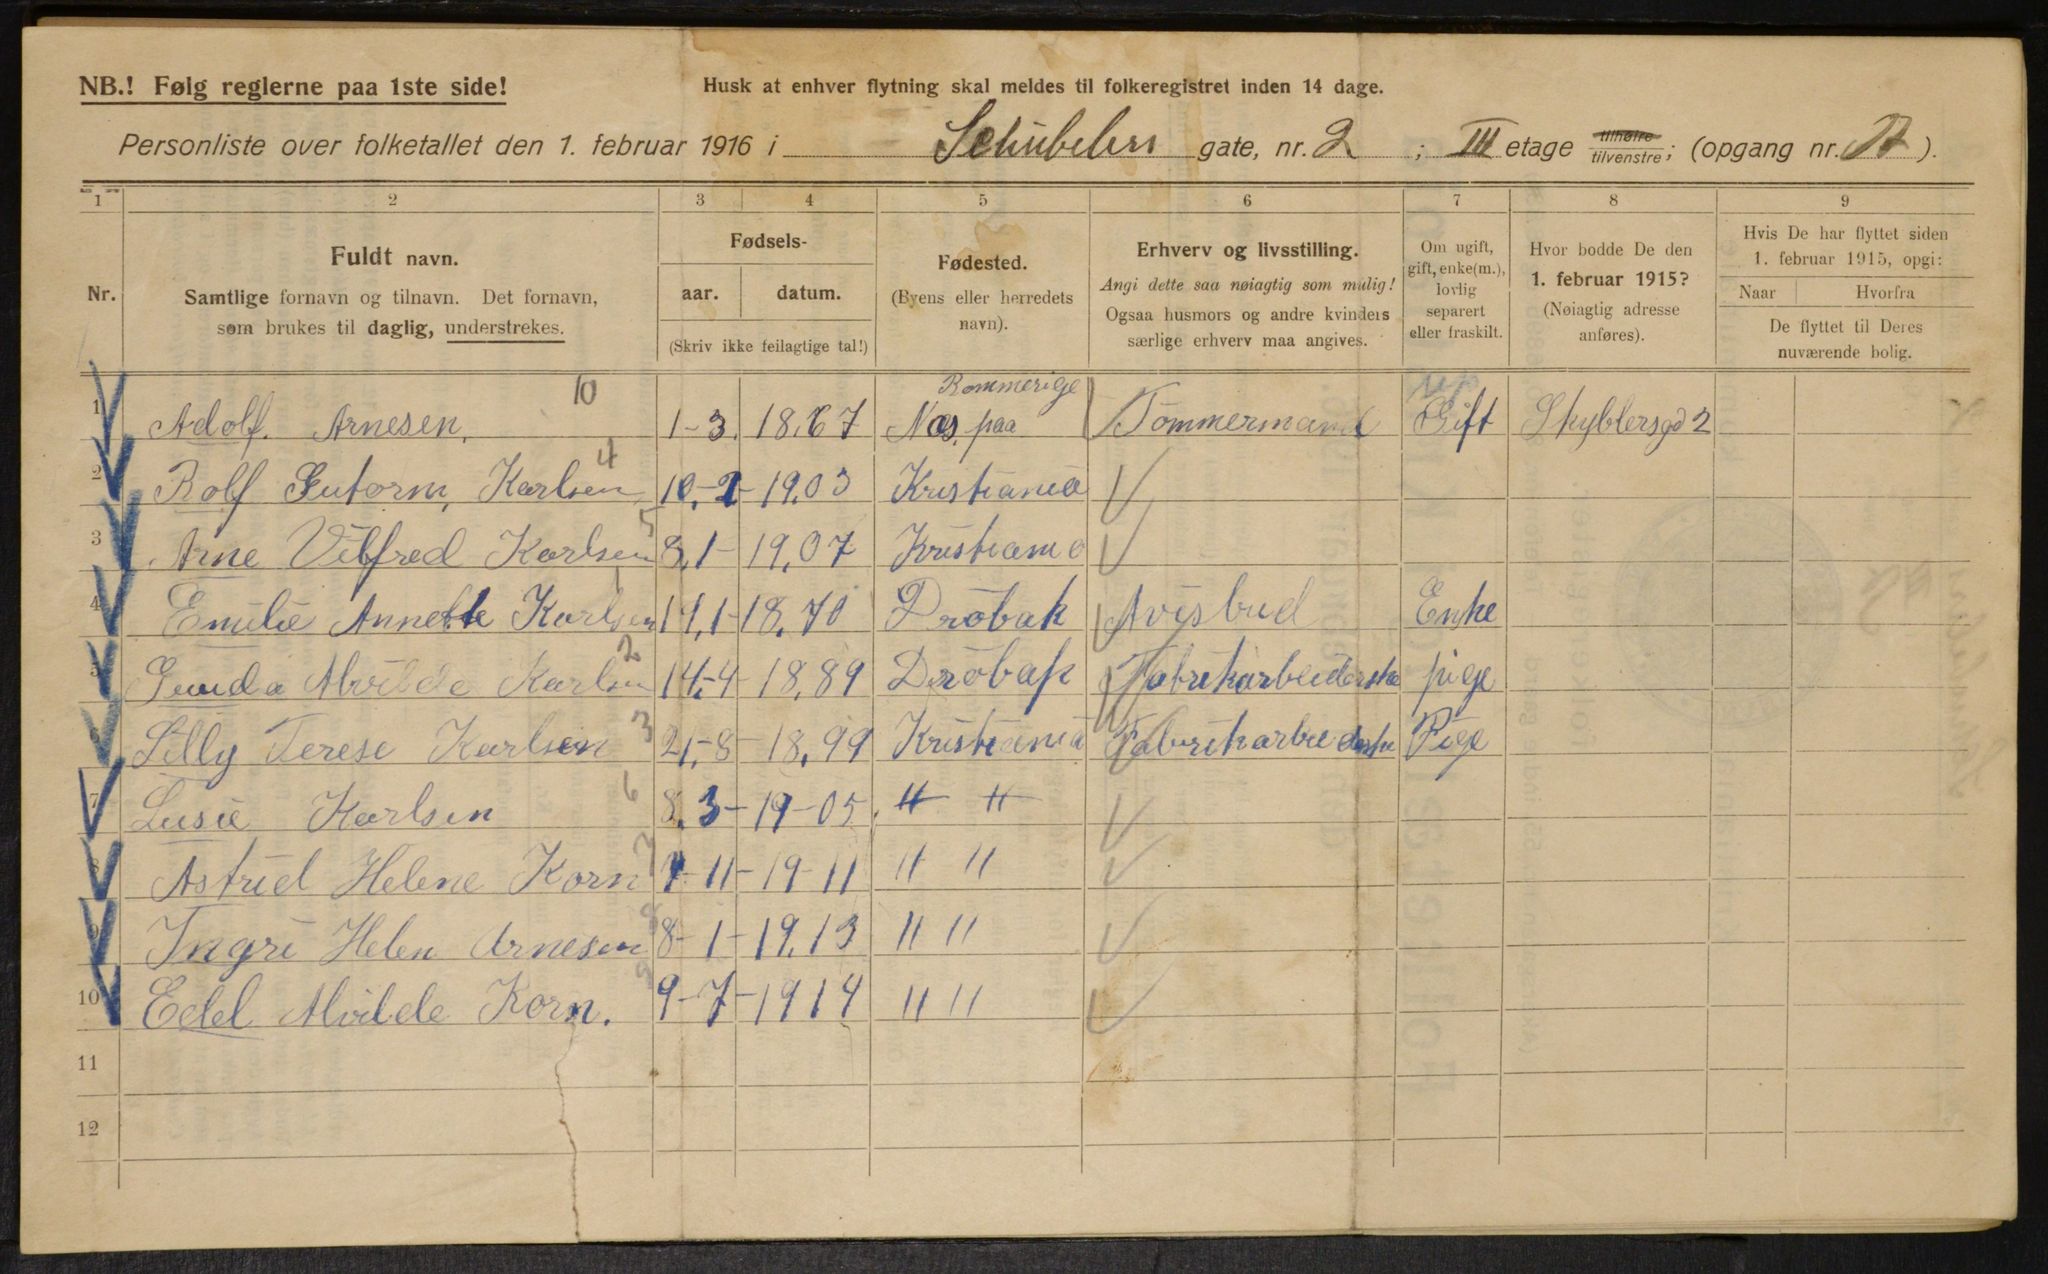 NB.! Følg reglerne paa 1ste side!
Husk at enhver flytning skal meldes til folkeregistret inden 14 dage.
Personliste over folketallet den 1. februar 1916 i Schübelers gate, nr. 2 ; III etage tilhøire tilvenstre; (opgang nr. A ).
1 2 3 4 5 6 7 8 9
Nr.
Fuldt navn.
Samtlige fornavn og tilnavn. Det fornavn,
som brukes til daglig, understrekes.
Fødsels-
aar. datum.
(Skriv ikke feilagtige tal!)
Fødested.
(Byens eller herredets
navn).
Erhverv og livsstilling.
Angi dette saa nøiagtig som mulig!
Ogsaa husmors og andre kvinders
særlige erhverv maa angives.
Om ugift,
gift, enke(m.),
lovlig
separert
eller fraskilt.
Hvor bodde De den
1. februar 1915?
(Nøiagtig adresse
anføres).
Hvis De har flyttet siden
1. februar 1915, opgi:
Naar Hvorfra
De flyttet til Deres
nuværende bolig.
10
Rommerige
1 Adolf. Arnesen, 1-3. 18.67 Nes. paa Tommermand Gift Skyblersgd 2
4
2 Rolf Gutorm, Karlsen 10.-2- 19.03 Kristiania
5
3 Arne Vilfred Karlsen 8.1- 19.07 Kristiania
1
4 Emilie Annette Karlsen 14.1- 18.70 Drøbak Avisbud Enke
2
5 Gunda Alvilde Karlsen 14.-4 18.89 Drøbak Fabrikarbeiderske pige
3
6 Lilly Terese Karlsen 21.-8- 18.99 Kristiania Fabrikarbeiderske Pige
6
7 Lusie Karlsen 8.3- 19-05. " "
7
8 Astrid Helene Korn 11- 19-11 " "
8
9 Ingri Helen Arnesen 8-1- 19.13 " "
9
10 Edel Alvilde Korn. 9-7- 1914 " "
11
12